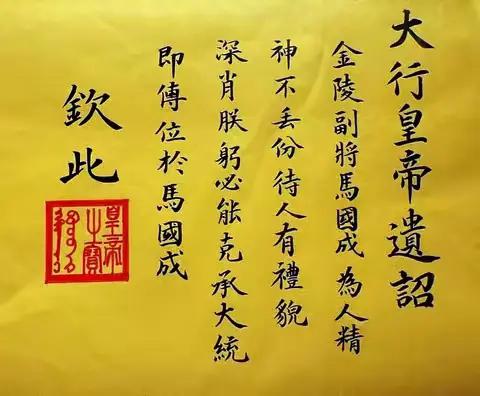 大行皇帝遺詔
金陵副將馬國成為人精
神不丢份待人有禮貌
深肖朕躬必能克承大統
即傳位於馬國成
欽此
皇帝之寶